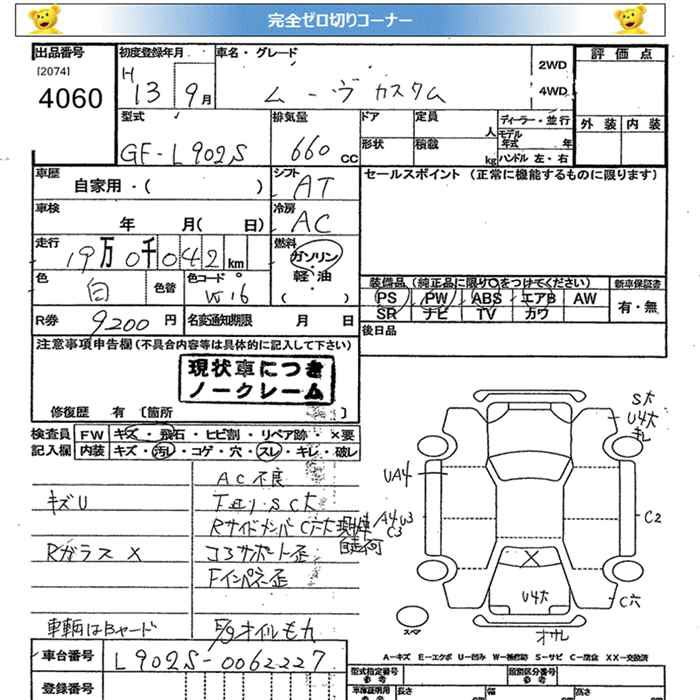 完全ゼロ切りコーナー
出品番号 初度登録年月 車名・グレード 2WD 評価点
[2074] H
4060 13 9月 ムーヴ カスタム 4WD
型式 排気量 ドア 定員 人 ディーラー・並行 外装 内装
GF-L902S 660 CC 形状 積載 kg モデル年式 年
ハンドル 左・右
車歴 シフト セールスポイント (正常に機能するものに限ります)
自家用・( ) AT
車検 冷房
年 月( 日) AC
走行 燃料
19万0千042km ガソリン
軽・油
色 色替 色コード ( )
白 W16
装備品 (純正品に限り○をつけてください) 新車保証書
PS PW ABS エアB AW 有・無
SR ナビ TV カワ
R券 9200円 名変通知期限 月 日 後日品
注意事項申告欄 (不具合内容等は具体的に記入して下さい)
現状車につき
ノークレーム
修復歴 有 [箇所 ]
検査員 FW キズ・飛石・ヒビ割・リペア跡・×要
記入欄 内装 キズ・汚レ・コゲ・穴・スレ・キレ・破レ
AC不良
キズU
下廻り・SC大
RサイドメンバC穴大
現状車
自走不可
Rガラス X
コアサポート歪
Fインパネ歪
車輌はBヤード
E/gオイルもれ
S大
U4大
キレ
UA4
A4 U3
C3
C2
X
U4大
C穴
スペア
オサレ
A-キズ E-エクボ U-凹み W-補修跡 S-サビ C-腐食 XX-交換済
車台番号 L902S-0062227
型式指定番号 参考 類別区分番号 参考
登録番号 車庫証明用 参考 長さ 幅 高さ